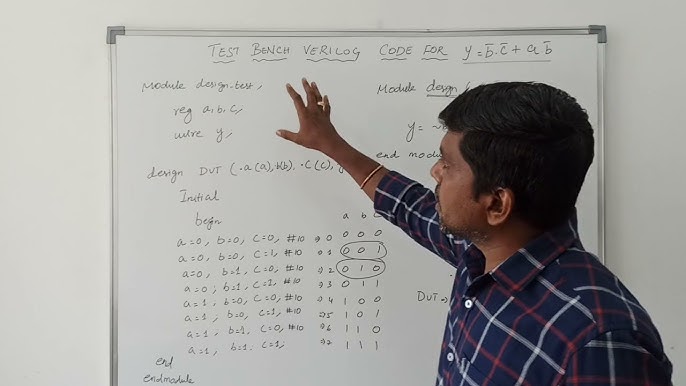 TEST BENCH VERILOG CODE FOR y = b̅.c̅ + a b̅
Module design-test,
reg a,b,c,
wire y,
design DUT (.a(a), .b(b), .c(c), y
Initial
begin
a=0, b=0, c=0, #10 ⇒ 0
a=0, b=0, c=1, #10 ⇒ 1
a=0, b=1, c=0, #10 ⇒ 2
a=0; b=1, c=1, #10 ⇒ 3
a=1, b=0, c=0, #10 ⇒ 4
a=1, b=0, c=1, #10 ⇒ 5
a=1, b=1. c=0, #10 ⇒ 6
a=1, b=1. c=1, ⇒ 7
end
endmodule
a b c
0 0 0
0 0 1
0 1 0
0 1 1
1 0 0
1 0 1
1 1 0
1 1 1
Module design
y = ~
end modu
DUT →